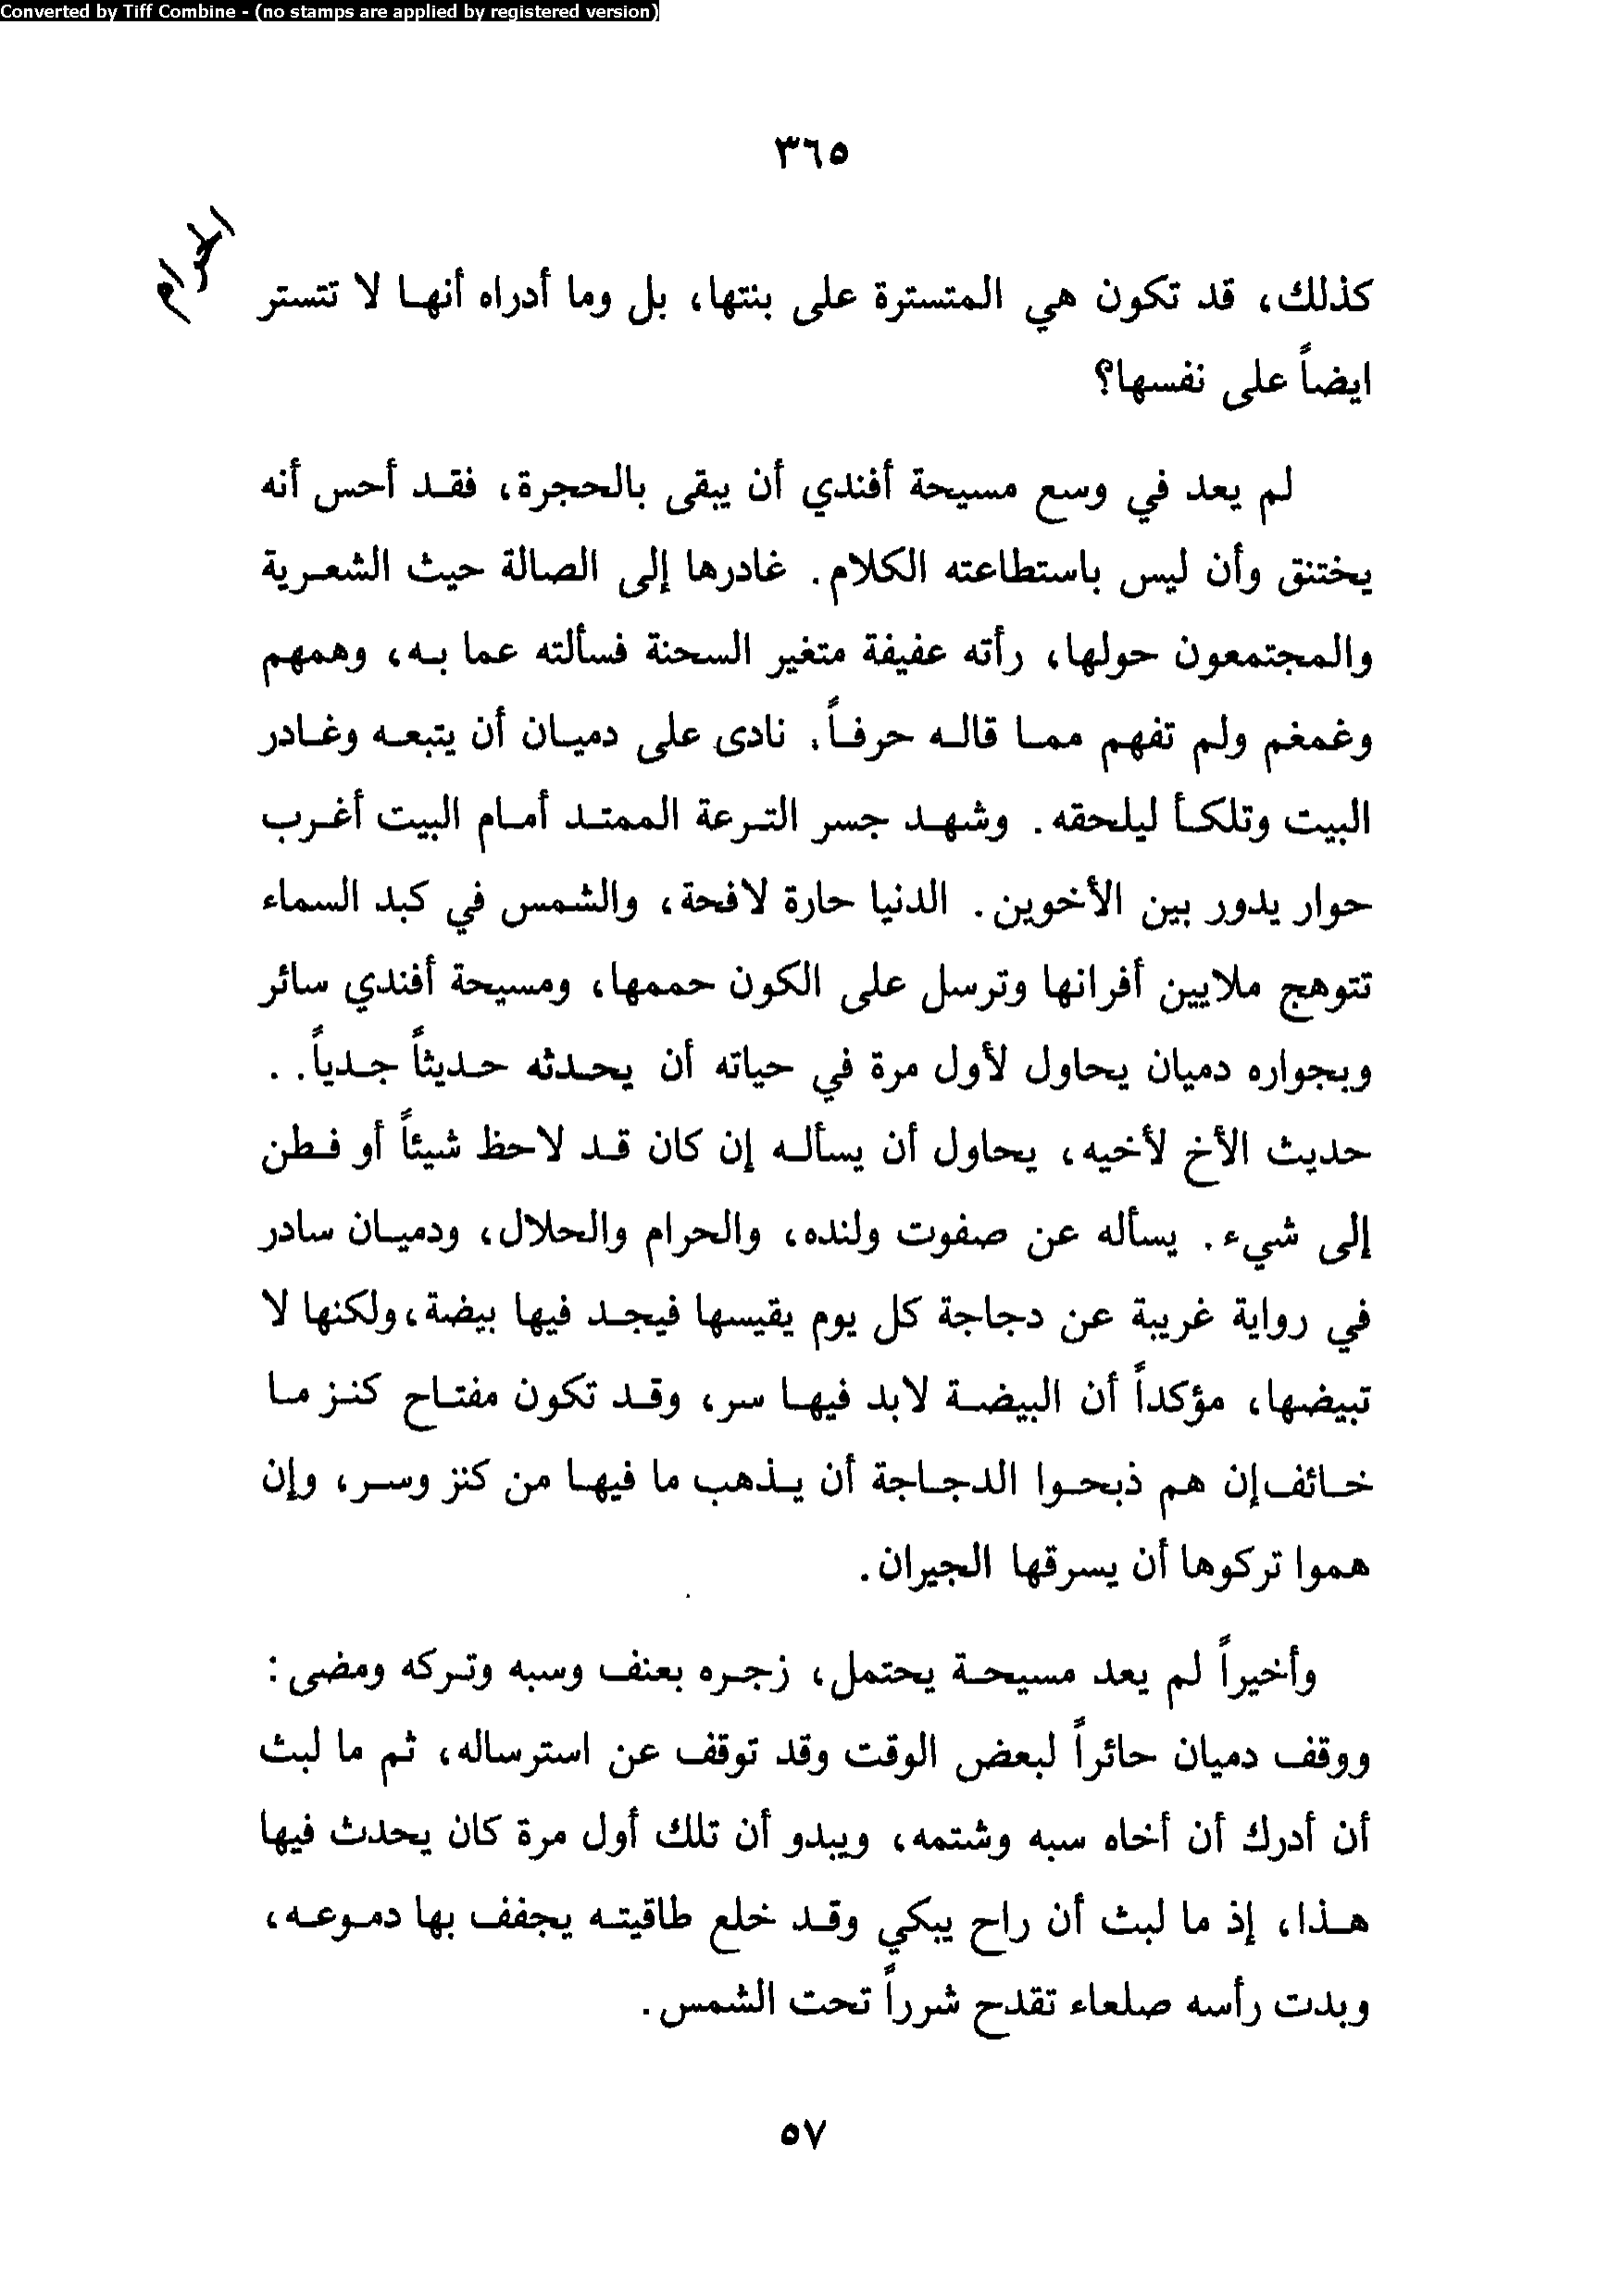 Converted by Tiff Combine - (no stamps are applied by registered version)
٣٦٥
الحرام
كذلك، قد تكون هي المتسترة على بنتها، بل وما أدراه أنها لا تتستر
ايضاً على نفسها؟
لم يعد في وسع مسيحة أفندي أن يبقى بالحجرة، فقد أحس أنه
يختنق وأن ليس باستطاعته الكلام. غادرها إلى الصالة حيث الشعرية
والمجتمعون حولها، رأته عفيفة متغير السحنة فسألته عما به، وهمهم
وغمغم ولم تفهم مما قاله حرفاً. نادى على دميان أن يتبعه وغادر
البيت وتلكأ ليلحقه. وشهد جسر الترعة الممتد أمام البيت أغرب
حوار يدور بين الأخوين. الدنيا حارة لافحة، والشمس في كبد السماء
تتوهج ملايين أفرانها وترسل على الكون حممها، ومسيحة أفندي سائر
وبجواره دميان يحاول لأول مرة في حياته أن يحدثه حديثاً جدياً..
حديث الأخ لأخيه، يحاول أن يسأله إن كان قد لاحظ شيئاً أو فطن
إلى شيء. يسأله عن صفوت ولنده، والحرام والحلال، ودميان سادر
في رواية غريبة عن دجاجة كل يوم يقيسها فيجد فيها بيضة، ولكنها لا
تبيضها، مؤكداً أن البيضة لابد فيها سر، وقد تكون مفتاح كنز ما
خائف إن هم ذبحوا الدجاجة أن يذهب ما فيها من كنز وسر، وإن
هموا تركوها أن يسرقها الجيران.
وأخيراً لم يعد مسيحة يحتمل، زجره بعنف وسبه وتركه ومضى:
ووقف دميان حائراً لبعض الوقت وقد توقف عن استرساله، ثم ما لبث
أن أدرك أن أخاه سبه وشتمه، ويبدو أن تلك أول مرة كان يحدث فيها
هذا، إذ ما لبث أن راح يبكي وقد خلع طاقيته يجفف بها دموعه،
وبدت رأسه صلعاء تقدح شرراً تحت الشمس.
٥٧